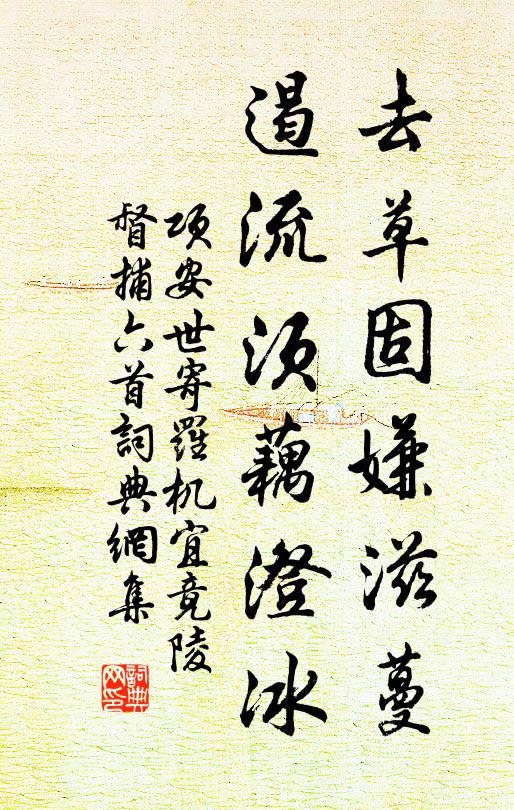 去草固嫌滋蔓
遏流须藕澄冰
项安世寄羅机宜竟陵
督捕六首詞典網集
詞典网印